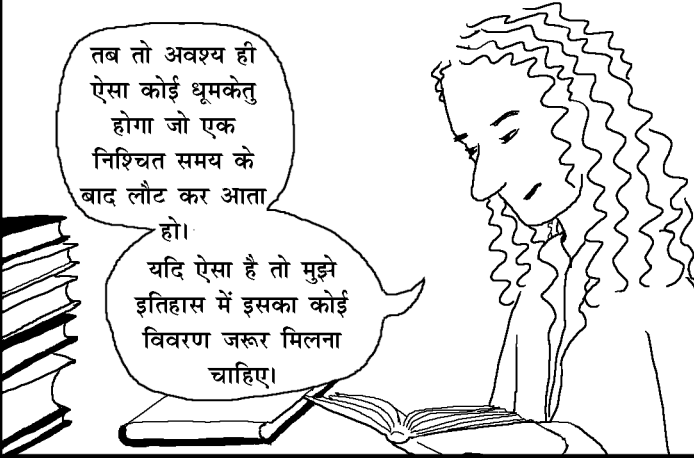 तब तो अवश्य ही
ऐसा कोई धूमकेतु
होगा जो एक
निश्चित समय के
बाद लौट कर आता
हो।
यदि ऐसा है तो मुझे
इतिहास में इसका कोई
विवरण जरूर मिलना
चाहिए।